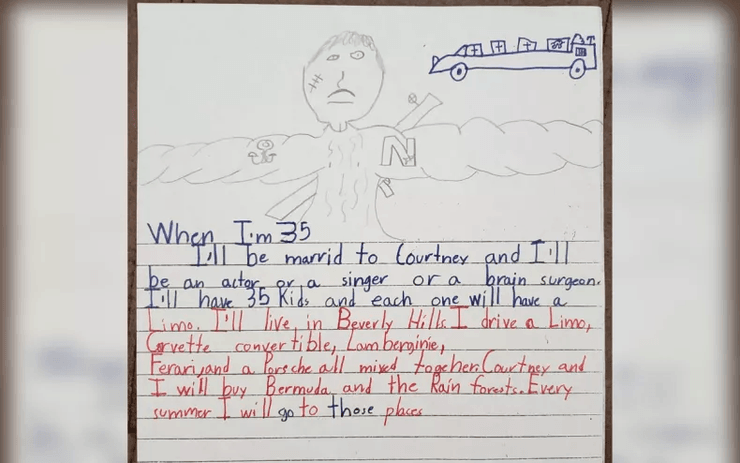 N
When I'm 35
I'll be marrid to Courtney and I'll
be an actor or a singer or a brain surgeon.
I'll have 35 Kids and each one will have a
Limo. I'll live in Beverly Hills. I drive a Limo,
Corvette convertible, Lamberginie,
Ferari, and a Porsche all mixed togehen. Courtney and
I will buy Bermuda and the Rain forests. Every
summer I will go to those places